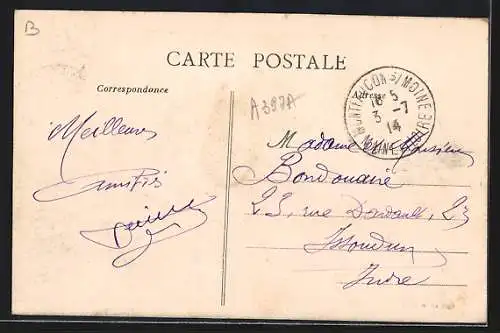 B
CARTE POSTALE
Correspondance
Adresse
A397A
MONTFAUCON S/ MOINE
MAINE ET LOIRE
16 5
3 - 7
14
Meilleures
amitiés
Madame Monsieur
23, rue 23
Issoudun
Indre